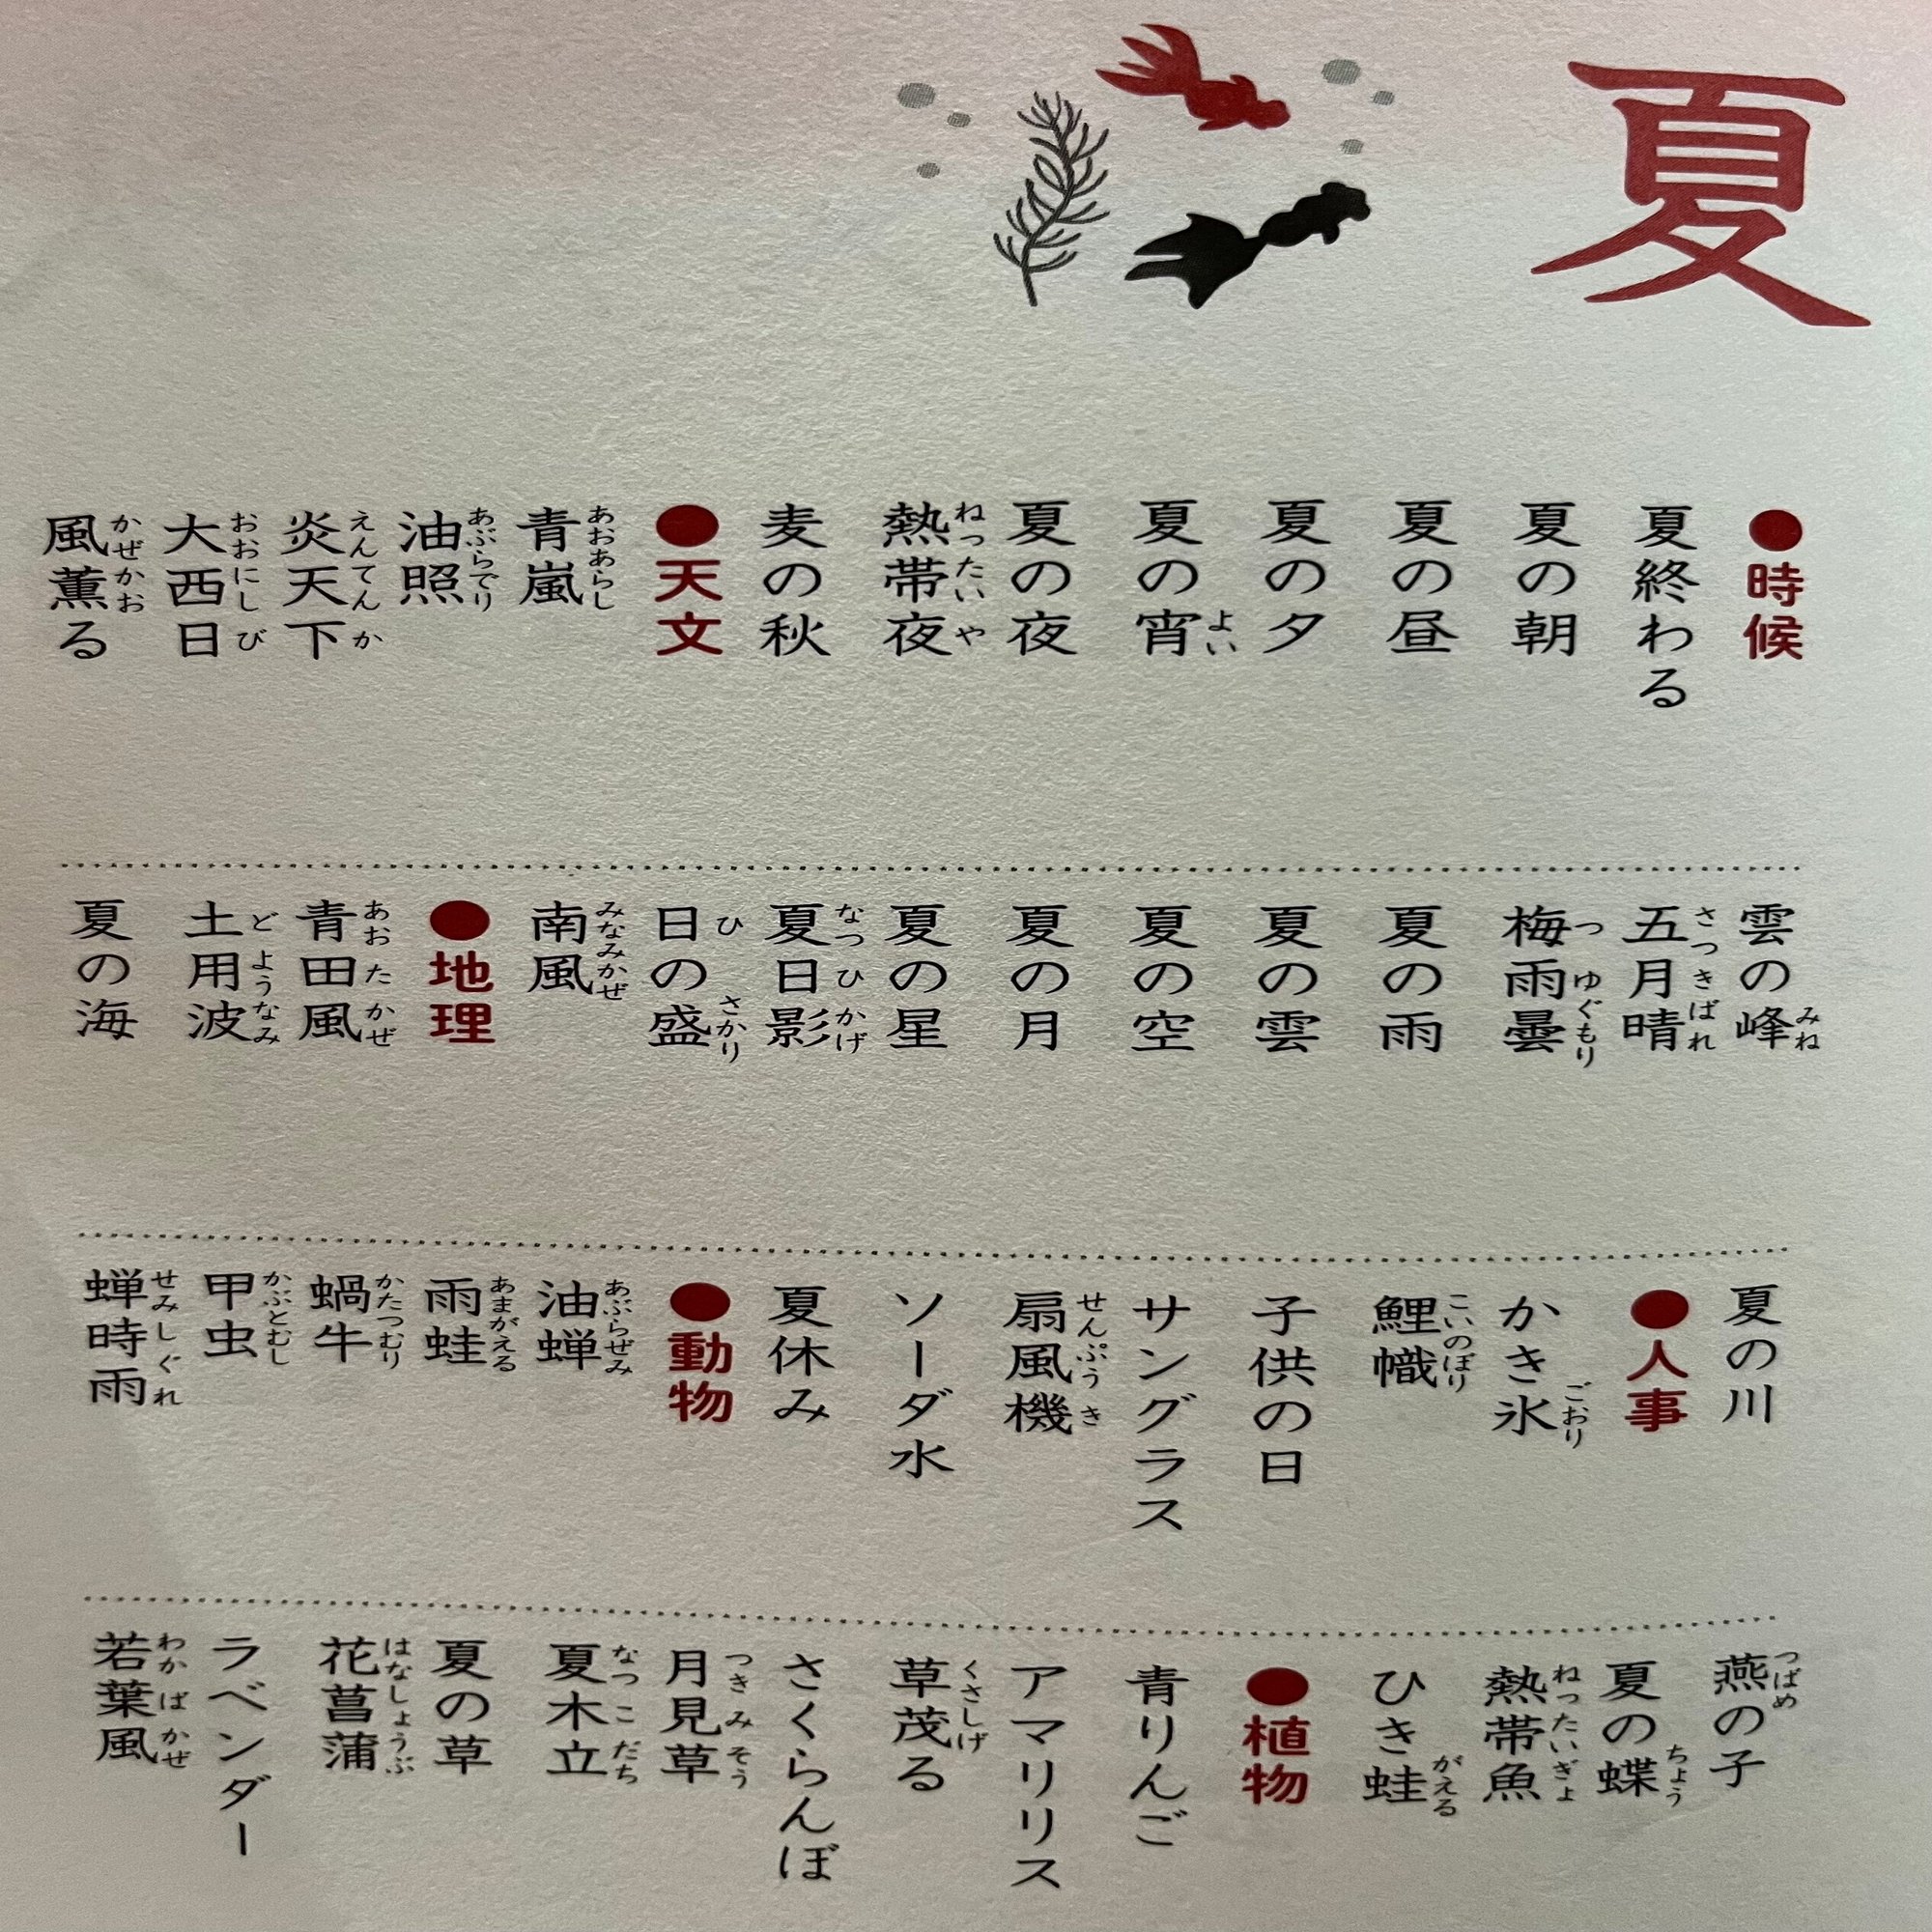 夏
●時候
夏終わる
夏の朝
夏の昼
夏の夕
夏の宵
よい
夏の夜
熱帯夜
ねったいや
麦の秋
●天文
青嵐
あおあらし
油照
あぶらでり
炎天下
えんてんか
大西日
おおにしび
風薫る
かぜかお
雲の峰
みね
五月晴
さつきばれ
梅雨曇
つゆぐもり
夏の雨
夏の雲
夏の空
夏の月
夏の星
夏日影
なつひかげ
日の盛
ひさかり
南風
みなみかぜ
●地理
青田風
あおたかぜ
土用波
どようなみ
夏の海
夏の川
●人事
かき氷
ごおり
鯉幟
こいのぼり
子供の日
サングラス
扇風機
せんぷうき
ソーダ水
夏休み
●動物
油蝉
あぶらぜみ
雨蛙
あまがえる
蝸牛
かたつむり
甲虫
かぶとむし
蝉時雨
せみしぐれ
燕の子
つばめ
夏の蝶
ちょう
熱帯魚
ねったいぎょ
ひき蛙
がえる
●植物
青りんご
アマリリス
草茂る
くさしげ
さくらんぼ
月見草
つきみそう
夏木立
なつこだち
夏の草
花菖蒲
はなしょうぶ
ラベンダー
若葉風
わかばかぜ